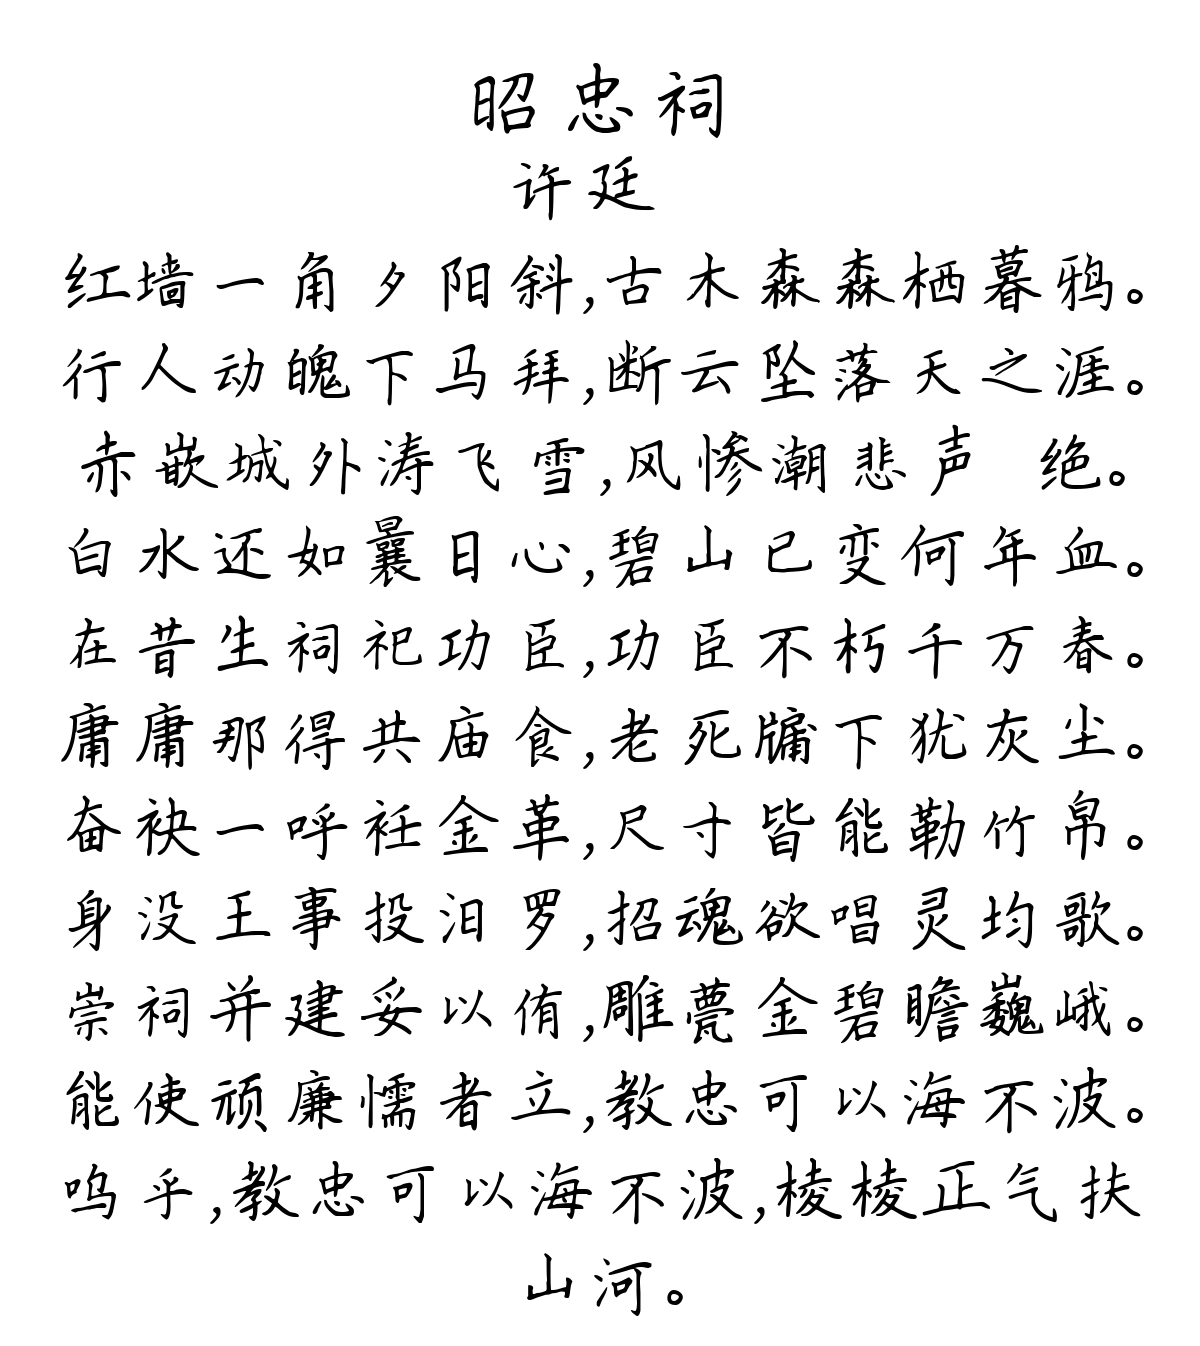 昭忠祠
许廷
红墙一角夕阳斜,古木森森栖暮鸦。
行人动魄下马拜,断云坠落天之涯。
赤嵌城外涛飞雪,风惨潮悲声 绝。
白水还如曩日心,碧山已变何年血。
在昔生祠祀功臣,功臣不朽千万春。
庸庸那得共庙食,老死牖下犹灰尘。
奋袂一呼衽金革,尺寸皆能勒竹帛。
身没王事投汨罗,招魂欲唱灵均歌。
崇祠并建妥以侑,雕甍金碧瞻巍峨。
能使顽廉懦者立,教忠可以海不波。
呜乎,教忠可以海不波,棱棱正气扶
山河。